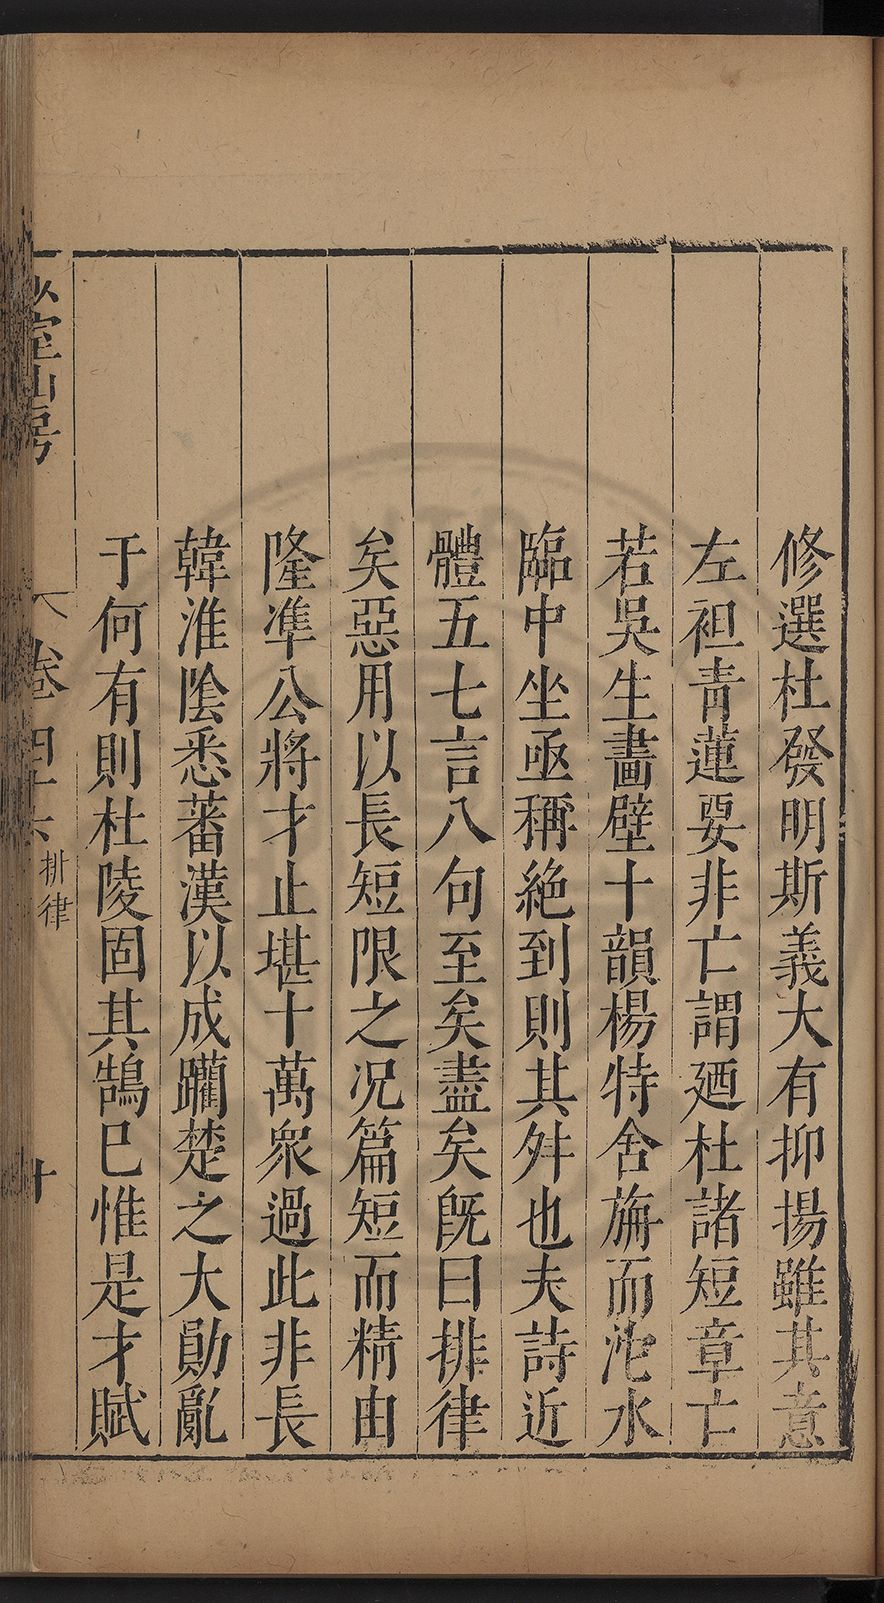 修選杜發明斯義大有抑揚雖其意
左袒青蓮要非亡謂廼杜諸短章亡
若吳生畫壁十韻楊特舍旃而沱水
臨中坐亟稱絶到則其舛也夫詩近
體五七言八句至矣盡矣旣曰排律
矣惡用以長短限之况篇短而精由
隆準公將才止堪十萬衆過此非長
韓淮陰悉蕃漢以成躪楚之大勛亂
于何有則杜陵固其鵠已惟是才賦
室山房
卷四十六
排律
十